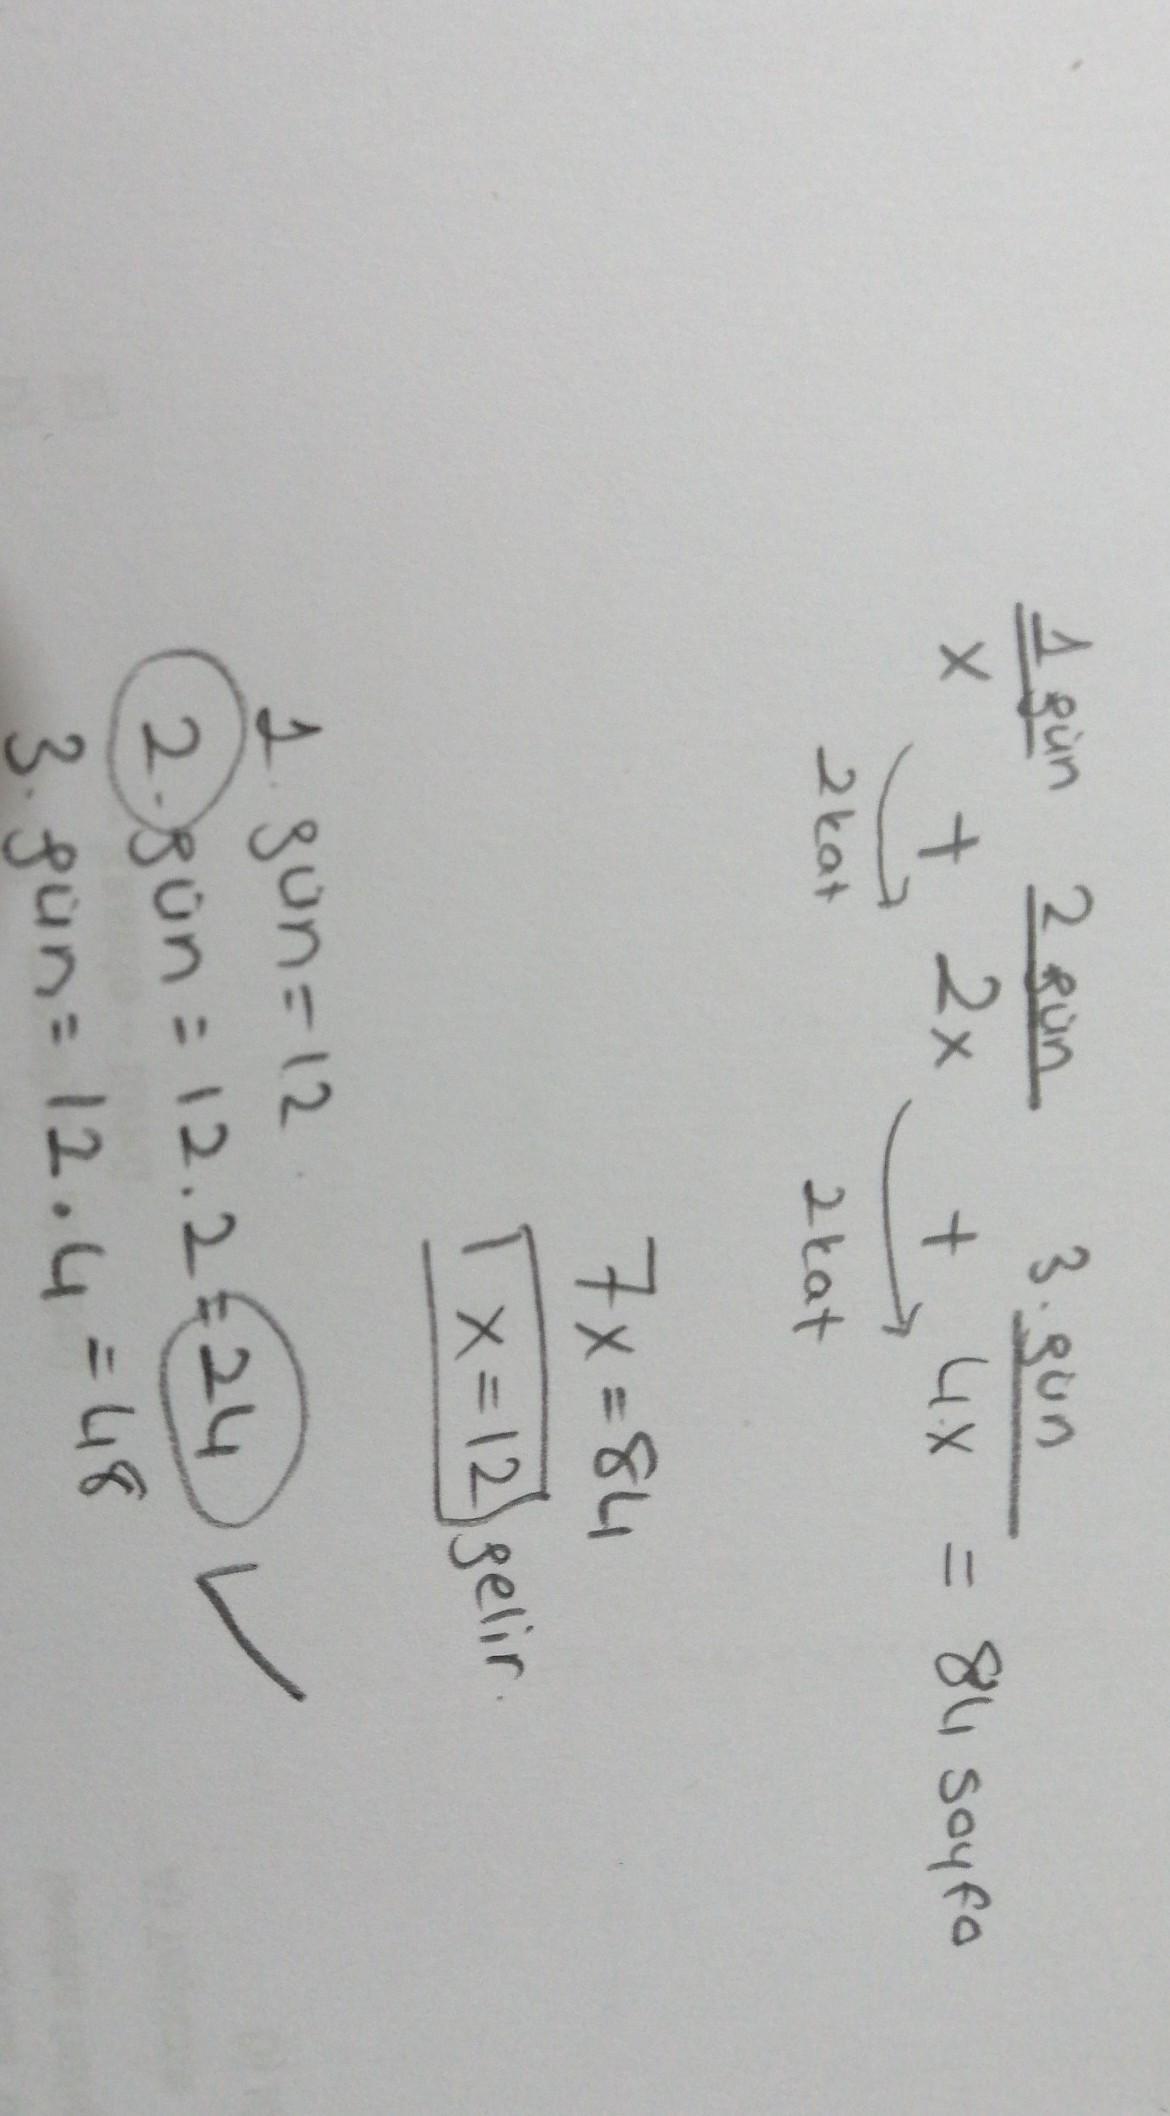 1 gün 2 gün 3. gün
x + 2x + 4x = 84 sayfa
2kat 2kat
7x = 84
x = 12 gelir.
1. gün = 12
2. gün = 12.2 = 24
3. gün = 12.4 = 48